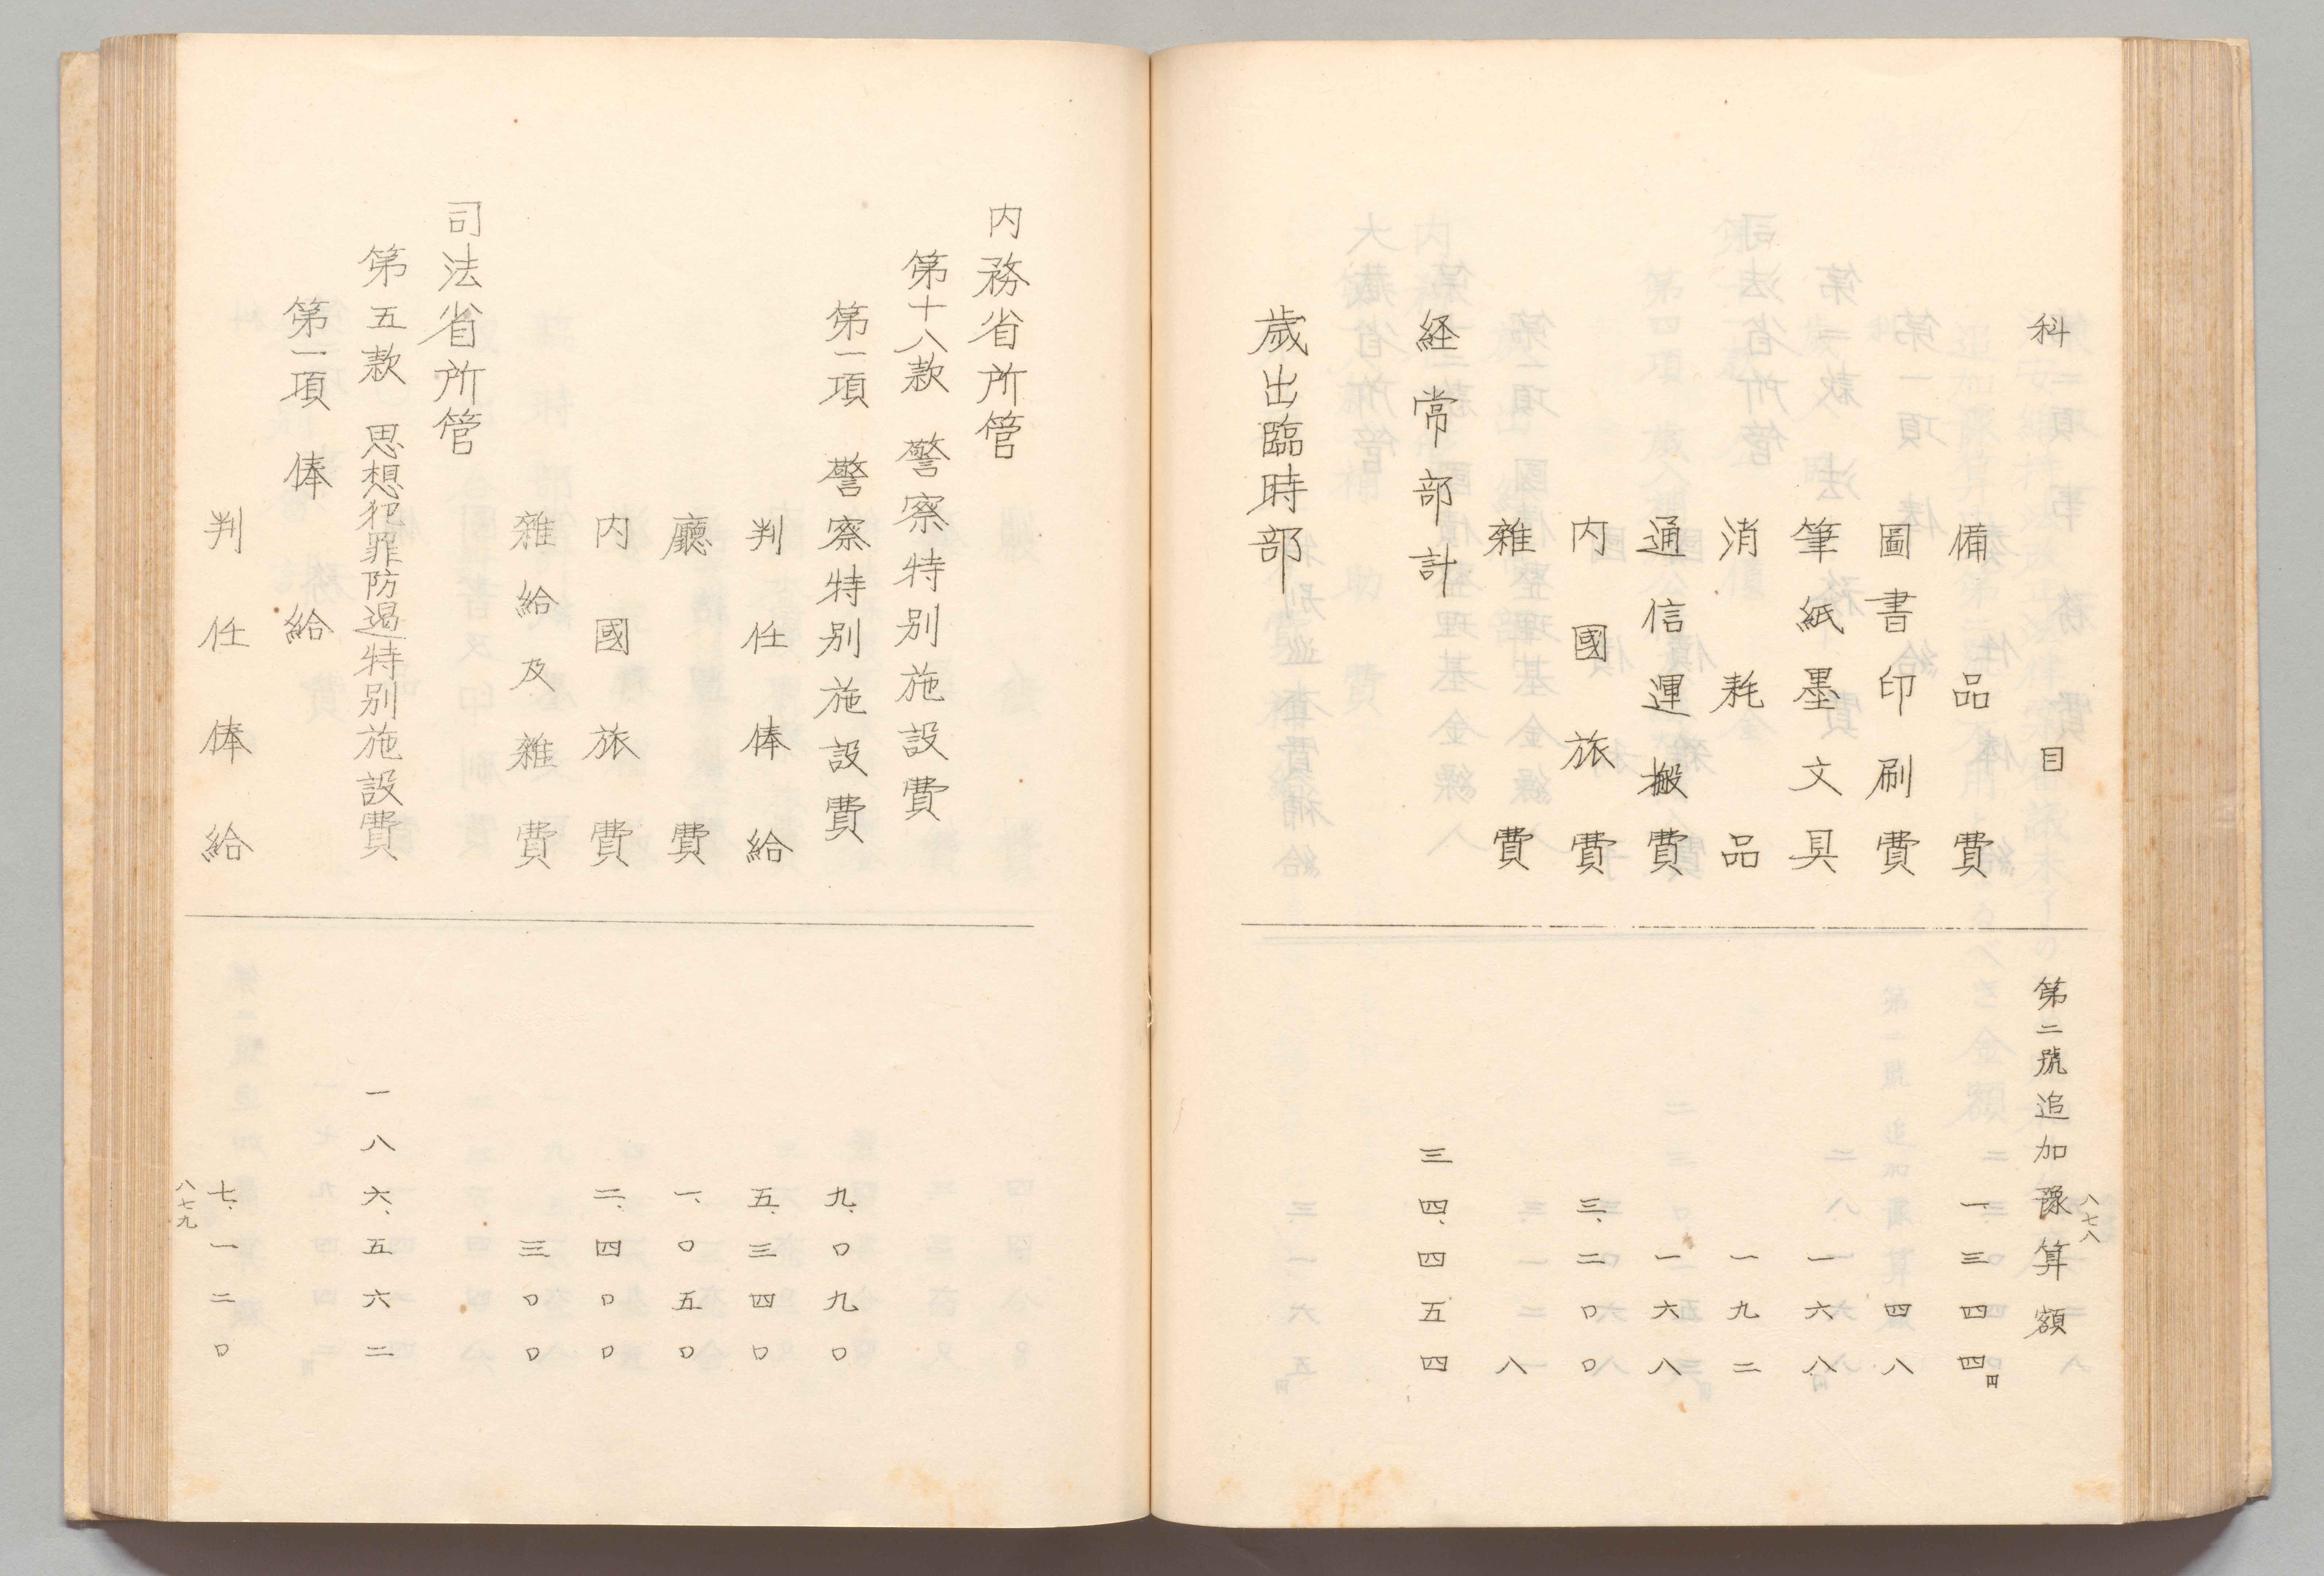 八七八
科目 第二號追加豫算額
備品費 一、三四四円
圖書印刷費 四八
筆紙墨文具 一六八
消耗品 一九二
通信運搬費 一六八
内國旅費 三、二〇〇
雜費 八
経常部計 三四、四五四
歳出臨時部
内務省所管
第十八款 警察特别施設費
第一項 警察特别施設費 九、〇九〇
判任俸給 五、三四〇
廳費 一、〇五〇
内國旅費 二、四〇〇
雜給及雜費 三〇〇
司法省所管
第五款 思想犯罪防遏特别施設費 一八六、五六二
第一項 俸給
判任俸給 七、一二〇
八七九